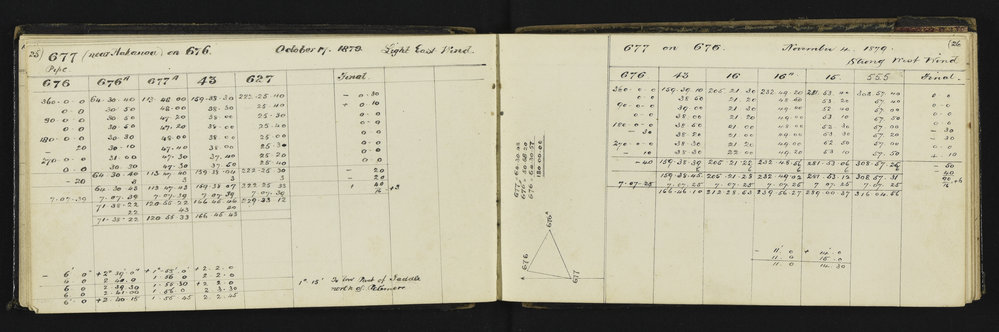 25
677 (near Aakanoa) on 676. October 17. 1879. Light East Wind.
Pipe
676 676A 677A 43 627 Final
360-0-0 64-30-40 113-48-00 159-38-30 222-25-40 - 0-30
0-0 30-50 48-00 38-30 25-40 + 0-10
90-0-0 30-50 47-20 38-00 25-30 0-0
0-0 30-50 47-20 38-00 25-40 0-0
180-0-0 30-30 48-00 38-00 25-40 0-0
20 30-10 47-40 38-00 25-30 0-0
270-0-0 31-00 47-30 37-40 25-20 0-0
0-0 30-30 47-30 37-50 25-40 0-0
64-30-40 113-47-40 159-38-04 222-25-30 - 20
- 20 3 3 3 3 - 20
64-30-43 113-47-43 159-38-07 222-25-33 40
7-07-39 7-07-39 7-07-39 7-07-39 7-07-39 16 +3
71-38-22 120-55-22 166-45-46 229-33-12
22 43 20
71-38-22 120-55-33 166-45-43
- 6' 0" + 2° 39' 0" + 1°-55'. 0" + 2. 2. 0
4 0 2 40 0 1. 56 0 2. 2. 0
6 0 2 39 30 1. 55 30 + 2. 2. 0
6 0 2 41 00 1. 56 0 2. 3. 30
6 0 + 2. 40 15 1. 55 45 2. 2. 45
1° 15' To low Part of Saddle
north of
677 on 676. November 4. 1879. 26
Strong West Wind
676 43 16 16A 15 555 Final.
360-0-0 159-39-10 205-21-30 232-49-20 281-53-40 308-57-40 0-0
0 0 38 50 21 20 48 50 53 20 57. 40 0-0
90-0-0 39-00 21 30 49 00 53 20 57. 40 0-0
0-0 38 00 21 20 49 00 53 10 57. 50 0-0
180-0-0 38 50 21 00 49 00 52 30 57. 00 - 30
- 30 38 20 21 00 49 00 53 30 57. 20 - 30
270-0-0 38 30 21 20 49 00 52 50 57. 00 0-0
- 10 38 00 22 00 49 20 53 10 57. 50 + 10
- 40 159-38-39 205-21-22 232-48-56 281-53-06 308-57-26 - 50
6 6 6 6 6 - 40
159-38-45 205-21-28 232-49-02 281-53-12 308-57-31 90 +6
7-07-25 7-07-25 7-07-25 7-07-25 7-07-25 7-07-25 16
166-46-10 212-28-53 239-56-27 289-00-37 316-04-56
180-00-00
676A
676
677
- 11' 0 + 14' 0
11. 0 15. 0
11. 0 14. 30